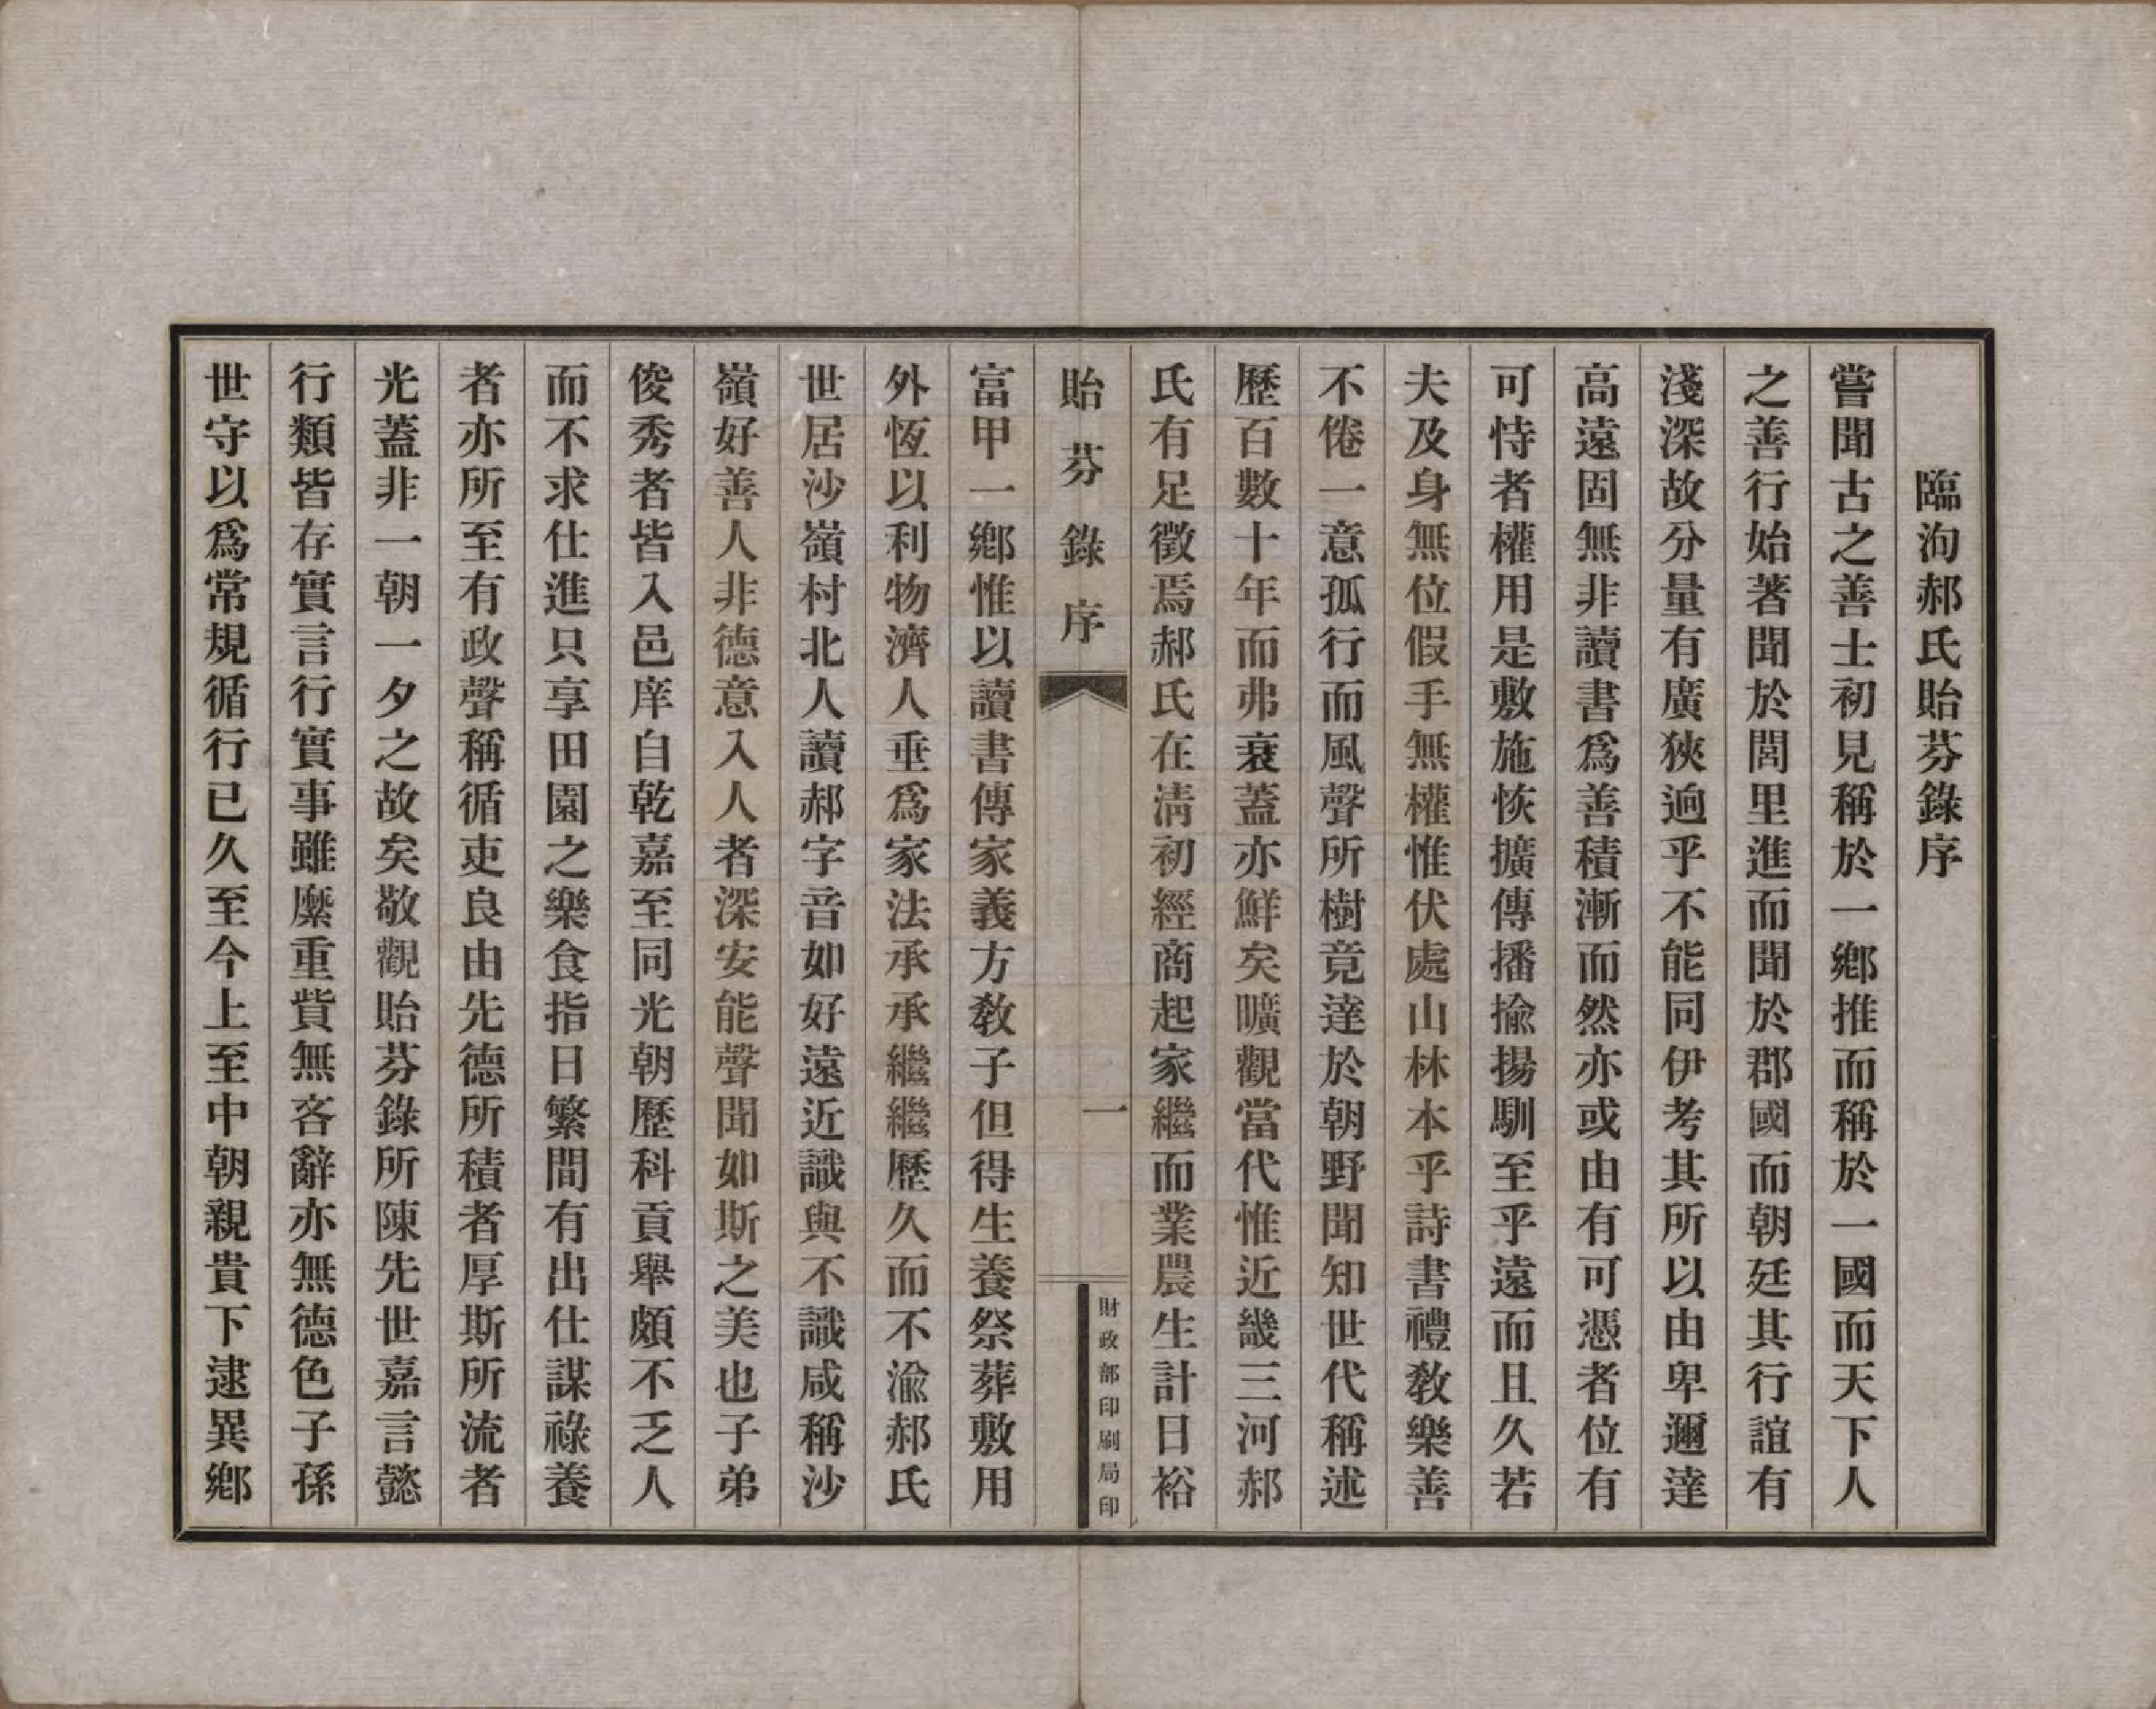 臨泃郝氏貽芬錄序
嘗聞古之善士初見稱於一鄕推而稱於一國而天下人
之善行始著聞於閭里進而聞於郡國而朝廷其行誼有
淺深故分量有廣狹逈乎不能同伊考其所以由卑邇達
高遠固無非讀書爲善積漸而然亦或由有可憑者位有
可恃者權用是敷施恢擴傳播揄揚馴至乎遠而且久若
夫及身無位假手無權惟伏處山林本乎詩書禮敎樂善
不倦一意孤行而風聲所樹竟達於朝野聞知世代稱述
歷百數十年而弗衰蓋亦鮮矣曠觀當代惟近畿三河郝
氏有足徵焉郝氏在淸初經商起家繼而業農生計日裕
貽芬錄序
一
財政部印刷局印
富甲一鄕惟以讀書傳家義方敎子但得生養祭葬敷用
外恆以利物濟人垂爲家法承承繼繼歷久而不渝郝氏
世居沙嶺村北人讀郝字音如好遠近識與不識咸稱沙
嶺好善人非德意入人者深安能聲聞如斯之美也子弟
俊秀者皆入邑庠自乾嘉至同光朝歷科貢舉頗不乏人
而不求仕進只享田園之樂食指日繁間有出仕謀祿養
者亦所至有政聲稱循吏良由先德所積者厚斯所流者
光蓋非一朝一夕之故矣敬觀貽芬錄所陳先世嘉言懿
行類皆存實言行實事雖縻重貲無吝辭亦無德色子孫
世守以爲常規循行已久至今上至中朝親貴下逮異鄕